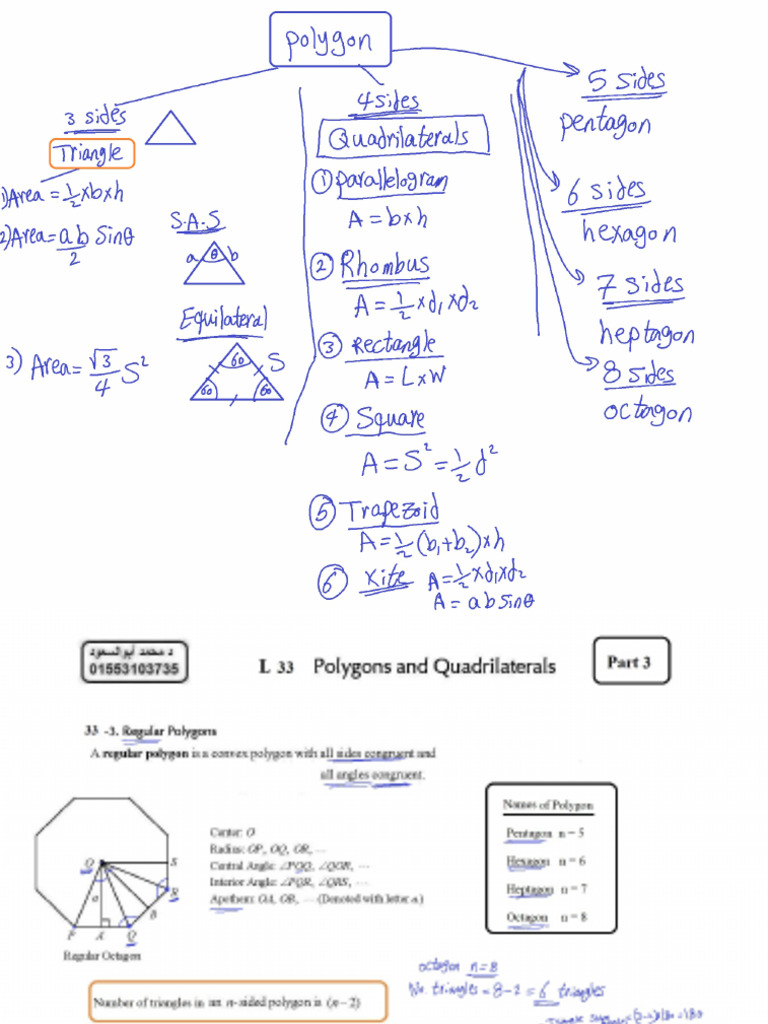 polygon
3 sides
Triangle
1) Area = 1/2 x b x h
2) Area = ab/2 Sinθ
S.A.S
a θ b
Equilateral
3) Area = √3/4 S²
60 S
60 60
4 sides
Quadrilaterals
① parallelogram
A = b x h
② Rhombus
A = 1/2 x d₁ x d₂
③ Rectangle
A = L x W
④ Square
A = S² = 1/2 d²
⑤ Trapezoid
A = 1/2 (b₁ + b₂) x h
⑥ Kite A = 1/2 x d₁ x d₂
A = ab sinθ
5 sides
pentagon
6 sides
hexagon
7 sides
heptagon
8 sides
octagon
د محمد أبوالسعود
01553103735
L 33 Polygons and Quadrilaterals
Part 3
33 -3. Regular Polygons
A regular polygon is a convex polygon with all sides congruent and
all angles congruent.
O S
R
a
B
P A Q
Regular Octagon
Center: O
Radius: OP, OQ, OR, ⋯
Central Angle: ∠POQ, ∠QOR, ⋯
Interior Angle: ∠PQR, ∠QRS, ⋯
Apothem: OA, OB, ⋯ (Denoted with letter a.)
Names of Polygon
Pentagon n = 5
Hexagon n = 6
Heptagon n = 7
Octagon n = 8
Number of triangles in an n-sided polygon is (n − 2)
octagon n = 8
No. triangles = 8 - 2 = 6 triangles